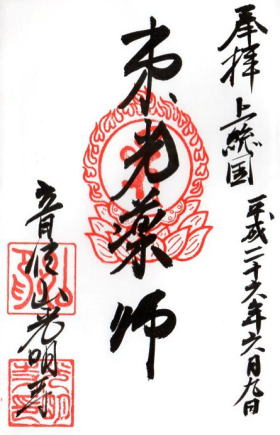 奉拝 上総国 平成二十六年六月九日
東光薬師
音信山光明寺